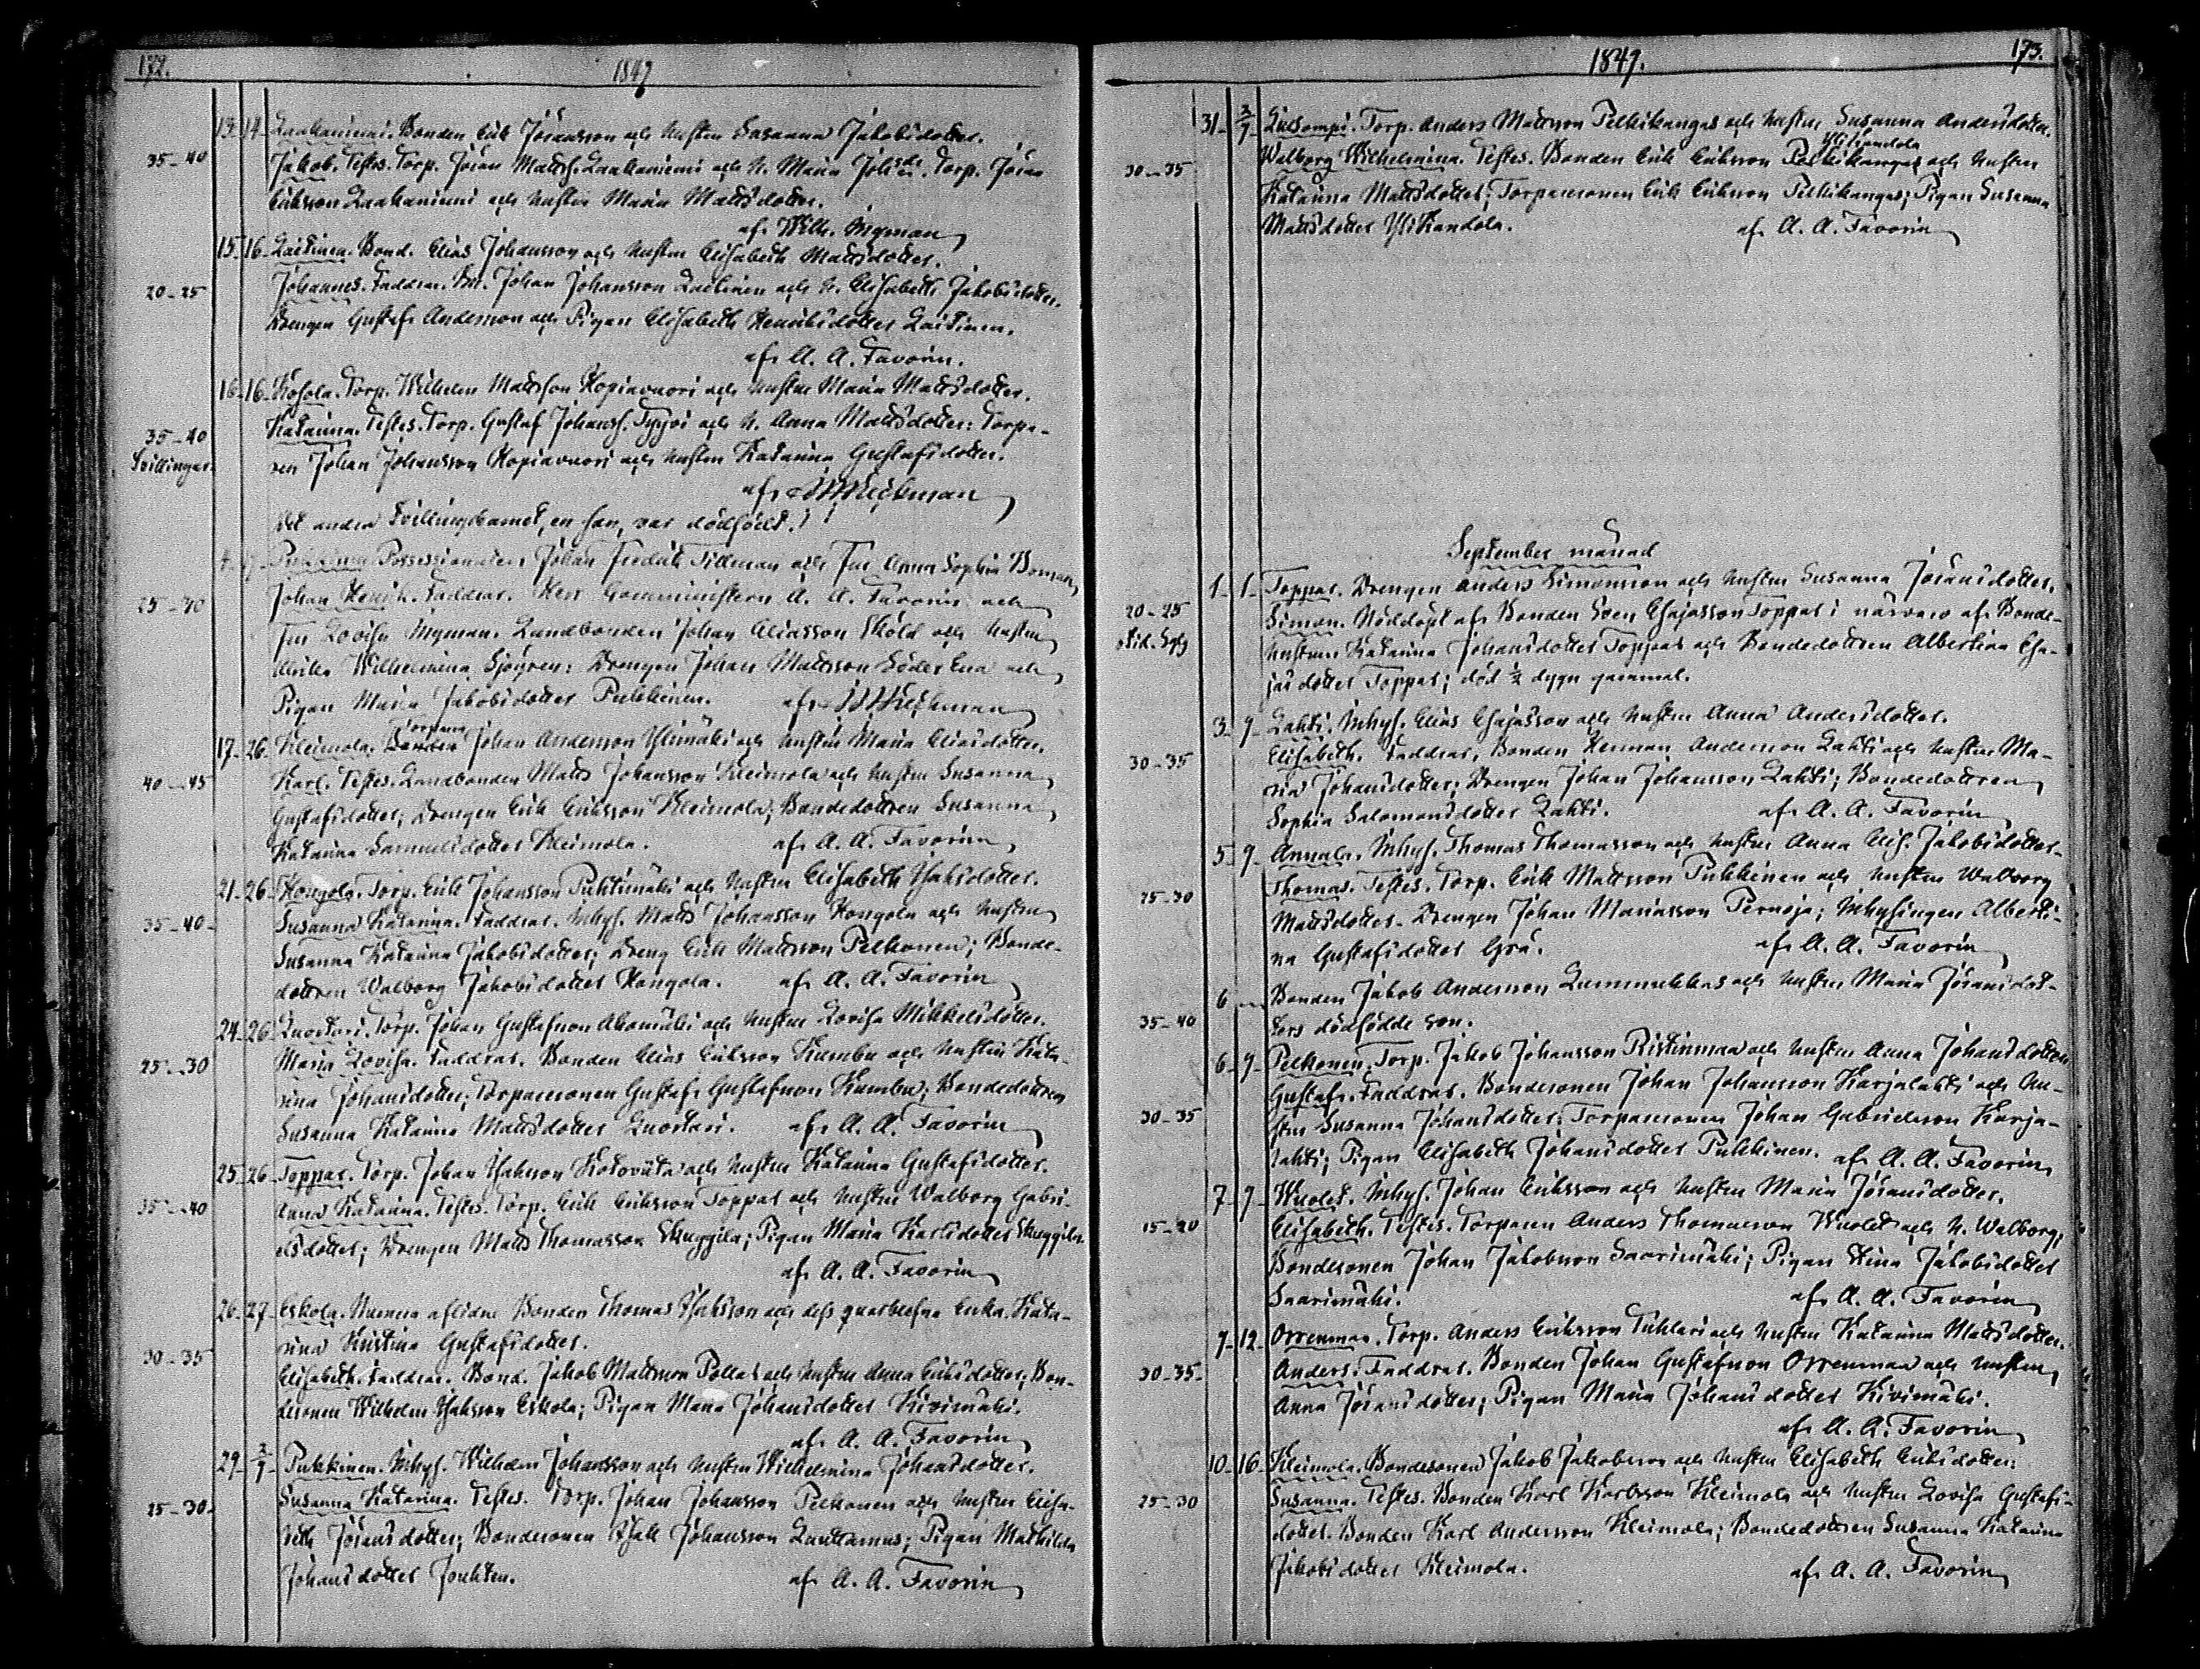 172.
1849
13. 14. Laakaniemi. Bonden Erik Jöransson och hustrun Susanna Jakobsdotter.
35-40
Jakob. Testes. Torp. Jöran Mattss. Laakaniemi och h. Maria Joh:sdr. Torp. Jöran
Eriksson Laakaniemi och hustrun Maria Mattsdotter.
af. Wilh. Ingman
15. 16. Laitinen. Bond. Elias Johansson och hustrun Elisabeth Mattsdotter.
20-25
Johannes. Faddrar. Johan Johansson Laitinen och h. Elisabeth Jakobsdotter.
Drengen Gustaf Andersson och Pigan Elisabeth Henriksdotter Laitinen.
af A. A. Favorin.
16. 16. Kosola. Torp. Wilhelm Mattsson Kopiavuori och hustrun Maria Mattsdotter.
35-40
Katarina. Testes. Torp. Gustaf Johanss. och h. Anna Mattsdotter: Torpa-
Tvillingar.
ren Johan Johansson Kopiavuori och hustrun Katarina Gustafsdotter.
af
Det andra tvillingbarnet, en son, var dödfödt.
Possessionaten Johan Fredrik Tillman och Fru Anna Sophia Boman
25-30
Johan Henrik. Faddrar. Herr Comministern A. A. Favorin och
Fru Lovisa Ingman. Landbonden Johan Eliasson Sköld och hustrun
Ulrika Wilhelmina Sjögren: Drengen Johan Mattsson och
Pigan Maria Jakobsdotter Pukkinen. af
Torparen
17. 26. Kleimola. Bonden Johan Andersson Ylimäki och hustrun Maria Eliasdotter.
40-45
Karl. Testes. Landbonden Matts Johansson Kleimola och hustrun Susanna
Gustafsdotter; Drengen Erik Eriksson Kleimola; Bondedottren Susanna
Katarina Samuelsdotter Kleimola. af A. A. Favorin
21. 26. Kangola. Torp. Erik Johansson Puhtimäki och hustrun Elisabeth Isaksdotter.
35-40
Susanna Katarina. Faddrar. Inhys. Matts Johansson Kangola och hustrun
Susanna Katarina Jakobsdotter; Dreng Erik Mattsson Pelkonen; Bonde-
dottren Walborg Jakobsdotter Kangola. af A. A. Favorin
24. 26. Luostari. Torp. Johan Gustafsson Ahomäki och hustrun Lovisa Mikkelsdotter.
25-30
Maria Lovisa. Faddrar. Bonden Elias Eriksson Kumbu och hustrun Kata-
rina Johansdotter; Torparesonen Gustaf Gustafsson Kumbu; Bondedottren
Susanna Katarina Mattsdotter Luostari. af A. A. Favorin
25. 26. Toppar. Torp. Johan Isaksson och hustrun Katarina Gustafsdotter.
35-40
Anna Katarina. Testes. Torp. Erik Eriksson Toppar och hustrun Walborg Gabri-
elsdotter; Drengen Matts Thomasson Skuggila; Pigan Maria Karlsdotter Skuggila.
af A. A. Favorin
26. 27. Eskola. aflidne Bonden Thomas Isaksson och dess qvarblefna Enka Kata-
rina Kristina Gustafsdotter.
30-35
Elisabeth. Faddrar. Bond. Jakob Mattsson Pollar och hustrun Anna Eriksdotter; Bon-
desonen Wilhelm Isaksson Eskola; Pigan Maria Johansdotter Kivimäki.
af A. A. Favorin
29. 2/9 Pukkinen. Inhys. Wilhelm Johansson och hustrun Wilhelmina Johansdotter.
25-30
Susanna Katarina. Testes. Torp. Johan Johansson Pelkonen och hustrun Elisa-
beth Jöransdotter; Bondesonen Isak Johansson Lauttamus; Pigan Mathilda
Johansdotter af A. A. Favorin
173.
1849.
31. 2/9 Luosompi. Torp. Anders Mattsson Pelkikangas och hustrun Susanna Andersdotter.
Ylikandola
30-35
Walborg Wilhelmina. Testes. Bonden Erik Eriksson Pelkikangas och hustrun
Katarina Mattsdotter; Torparesonen Erik Eriksson Pelkikangas; Pigan Susanna
Mattsdotter Ylikandola. af A. A. Favorin
September månad
1. 1. Toppar. Drengen Anders Simonsson och hustrun Susanna Jöransdotter.
20-25
Simon. Nöddöpt af Bonden Sven Esajasson Toppar i närvaro af Bonde-
hustrun Katarina Johansdotter Toppar och Bondedottren Albertina Esa-
jasdotter Toppar; död ½ dygn gammal.
3. 9. Lahti. Inhys. Elias Esajasson och hustrun Anna Andersdotter.
30-35
Elisabeth. Faddrar. Bonden Herman Andersson Lahti och hustrun Ma-
ria Johansdotter; Drengen Johan Johansson Lahti; Bondedottren
Sophia Salomonsdotter Lahti. af A. A. Favorin
5. 9. Annala. Inhys. Thomas Thomasson och hustrun Anna Elis. Jakobsdotter.
25-30
Thomas. Testes. Torp. Erik Mattsson Pukkinen och hustrun Walborg
Mattsdotter. Drengen Johan Mariasson Pernaja; Inhysingen Alberti-
na Gustafsdotter Grå. af A. A. Favorin
6 Bonden Jakob Andersson Lummukka och hustrun Maria Jöransdot-
35-40
ters dödfödde son.
6. 9. Pelkonen. Torp. Jakob Johansson Ristinmaa och hustrun Anna Johansdotter.
Gustaf. Faddrar. Bondesonen Johan Johansson Karjalahti och hu-
30-35
strun Susanna Johansdotter; Torparesonen Johan Gabrielsson Karja-
lahti; Pigan Elisabeth Johansdotter Pukkinen. af A. A. Favorin
7. 9. Wuolet. Inhys. Johan Eriksson och hustrun Maria Jöransdotter.
15-20
Elisabeth. Testes. Torparen Anders Thomasson Wuolet och h. Walborg;
Bondesonen Johan Jakobsson Saarimäki; Pigan Stina Jakobsdotter
Saarimäki. af A. A. Favorin
7. 12. Orrenmaa. Torp. Anders Eriksson Tuhlari och hustrun Katarina Mattsdotter.
30-35
Anders. Faddrar. Bonden Johan Gustafsson Orrenmaa och hustrun
Anna Jöransdotter; Pigan Maria Johansdotter Kivimäki.
af A. A. Favorin
10. 16. Kleimola. Bondesonen Jakob Jakobsson och hustrun Elisabeth Eriksdotter.
25-30
Susanna. Testes. Bonden Karl Karlsson Kleimola och hustrun Lovisa Gustafs-
dotter. Bonden Karl Andersson Kleimola; Bondedottren Susanna Katarina
Jakobsdotter Kleimola. af A. A. Favorin